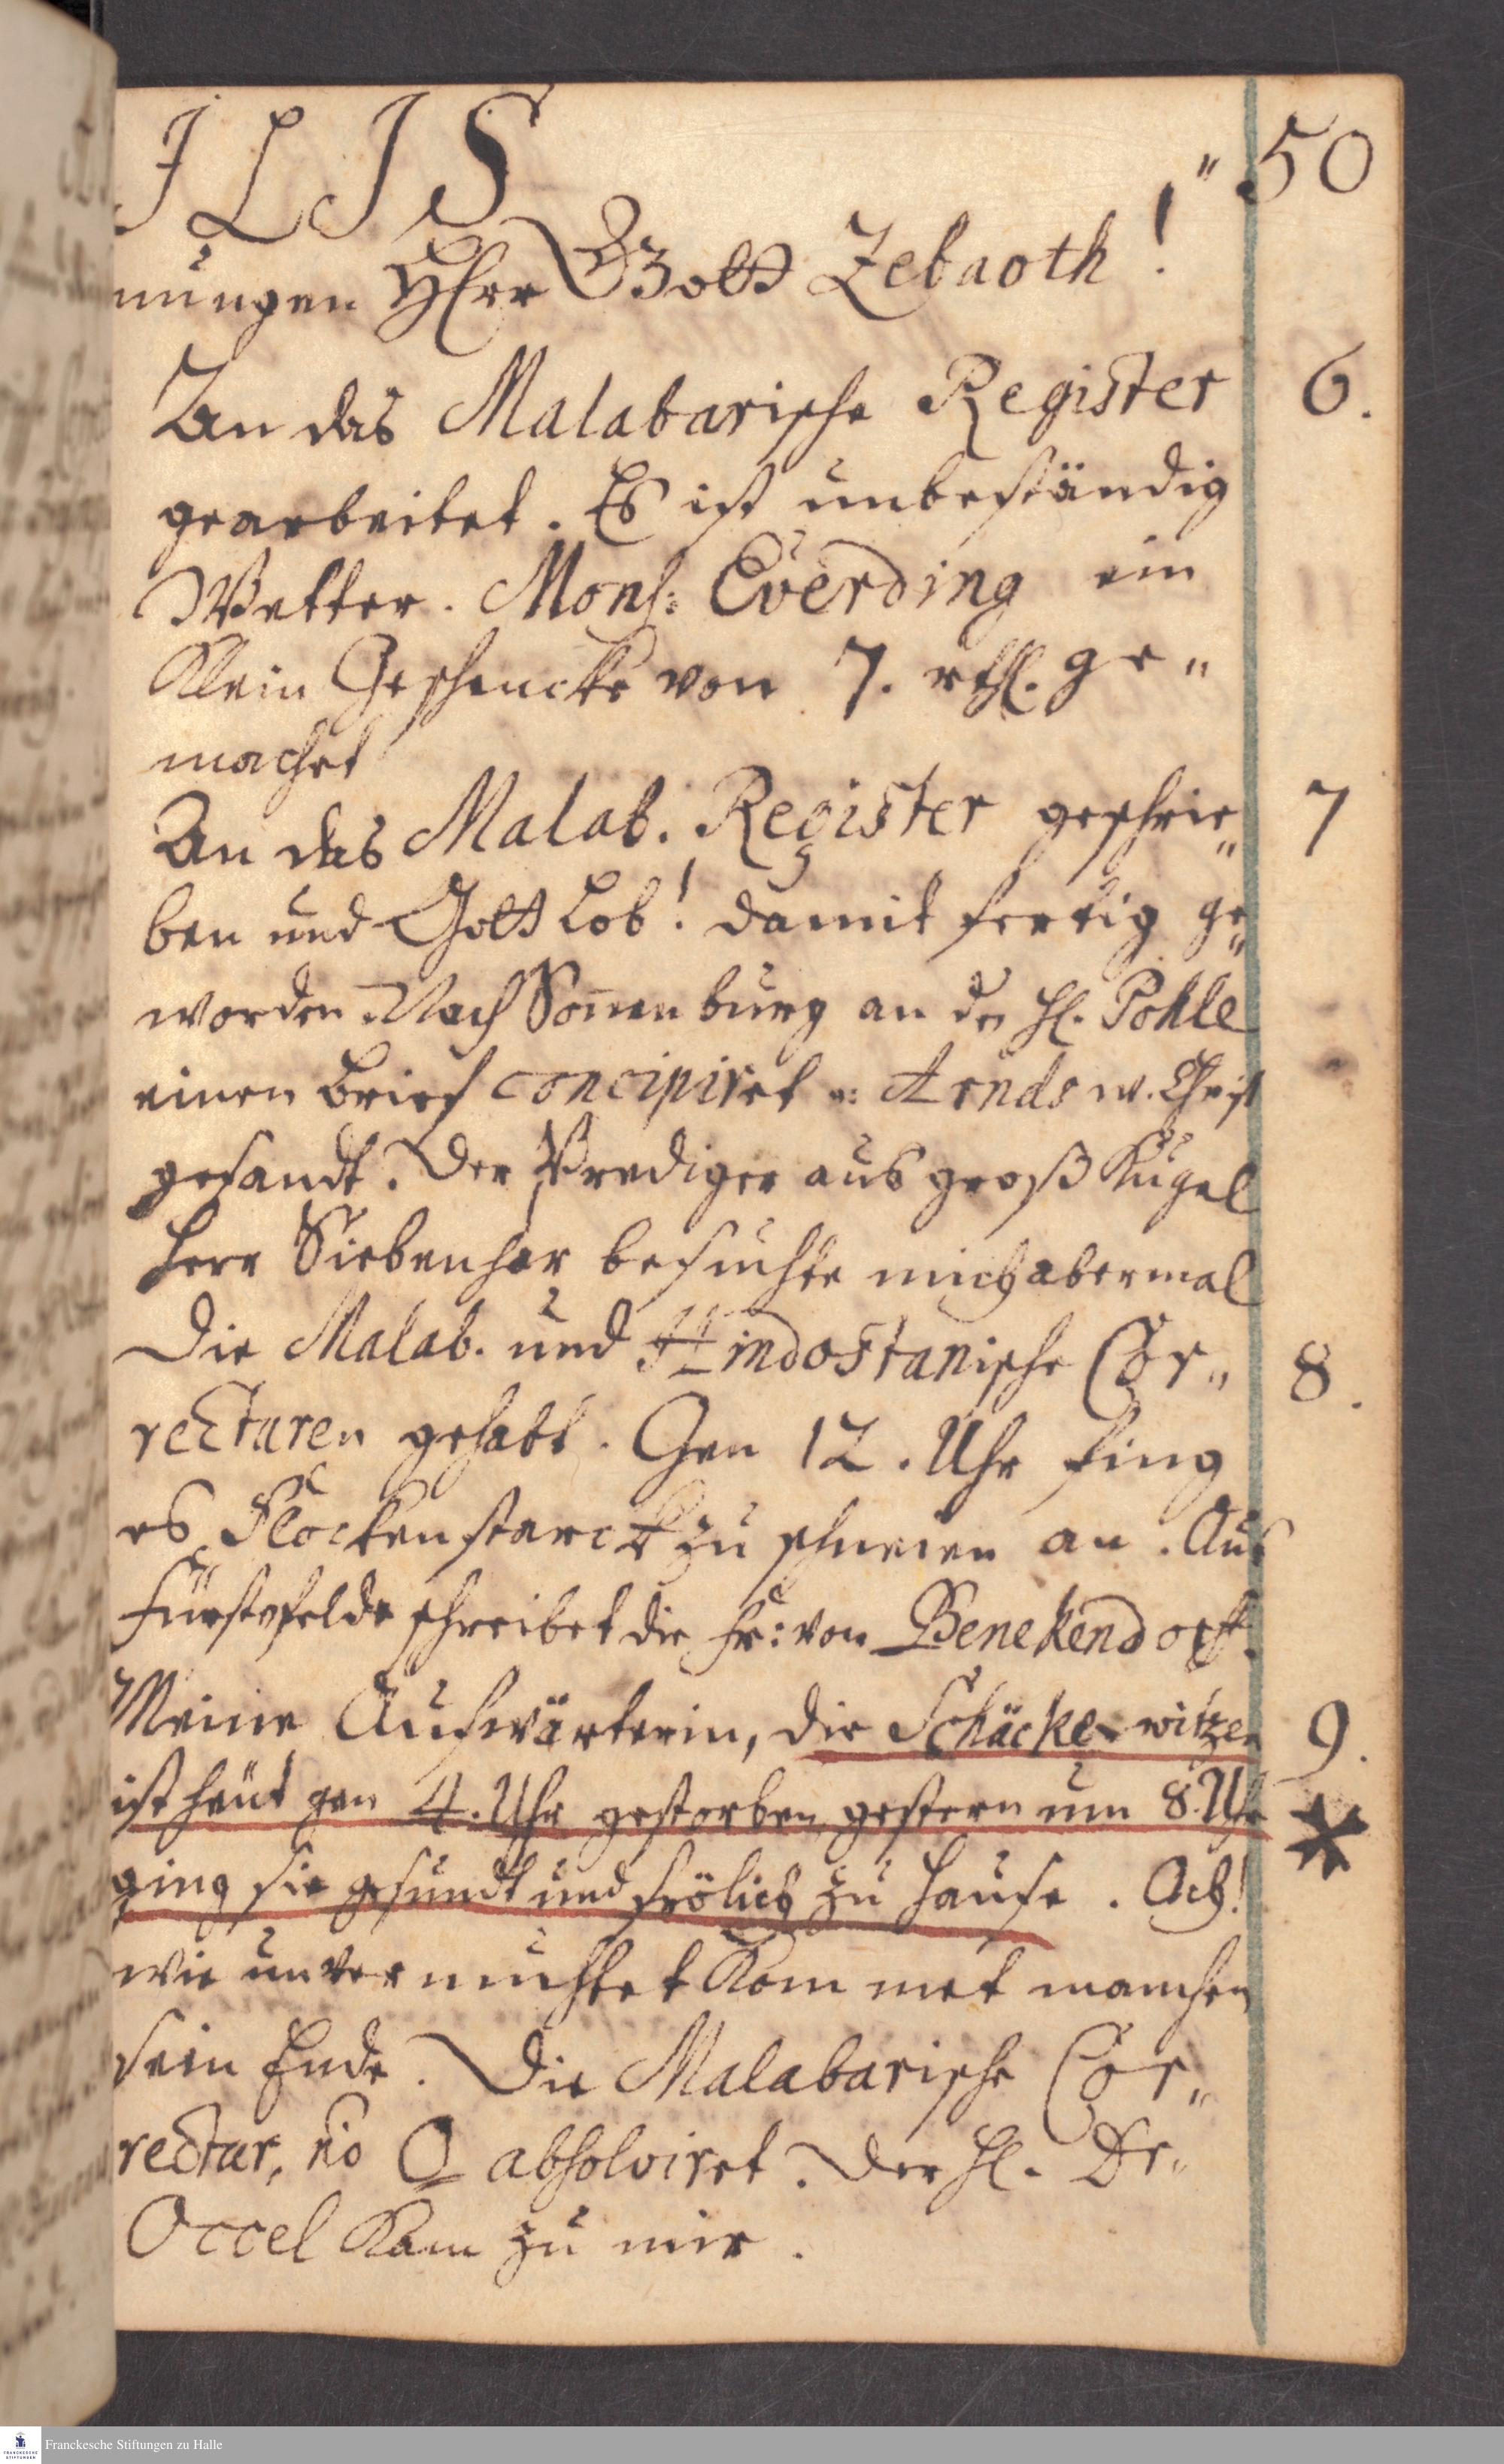 ILIS
" 50
nungen HErr GOtt Zebaoth!
An das Malabarische Register 6.
gearbeitet. Es ist unbeständig
Wetter. Mons: Everding ein
Klein Geschencke von 7. rthl. ge"
machet
An das Malab. Register geschrie" 7
ben und Gott Lob! damit fertig ge"
worden. Nach Sonnenburg an den H. Pohle
einen Brief concipiret u: Arnds w. Christ
gesandt. Der Prediger aus groß Kugel
Herr Siebenhar besuchte mich abermal
Die Malab. und Hindostanische Cor" 8.
recturen gehabt. Gen 12. Uhr fing
es Flocken starck zu schneien an. Aus
Fürstefelde schreibet die Fr: von Benekendorff.
Meine Aufwärterin, die Schäckewitzen 9.
ist heüt gen 4. Uhr gestorben, gestern um 8. Uhr *
ging sie gesundt und frölich zu Hause. Ach!
wie unvermuhtet Kommet manchen
sein Ende. Die Malabarische Cor"
rectur, no Q absolviret. Der H. Dr.
Occel Kam zu mir.
FRANCKESCHE STIFTUNGEN
Franckesche Stiftungen zu Halle